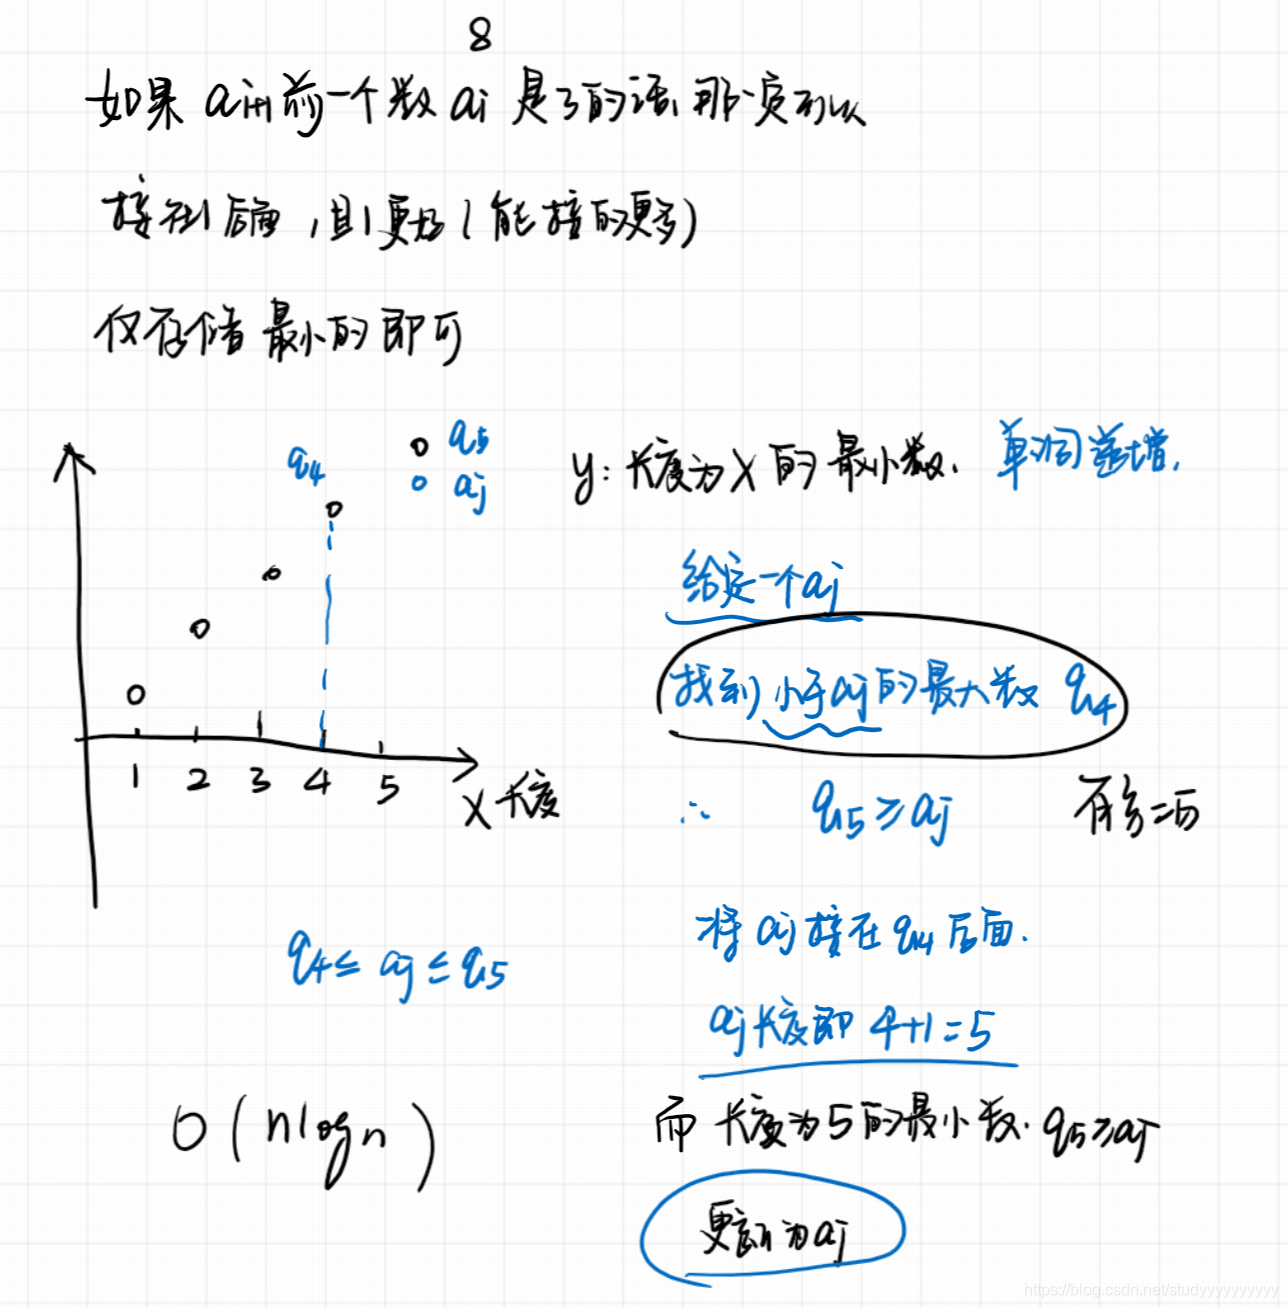 8
如果 ai的前一个数 ai 是3的话,那一定可以
接到后面,且更好(能接的更多)
仅存储最小的即可
q4
q5
aj
y:长度为X的最小数.单调递增.
给定一个aj
找到小于aj的最大数 q4
1 2 3 4 5
X 长度
∴ q5≥aj
q4≤aj≤q5
将aj接在q4后面.
aj长度即4+1=5
O(nlogn)
而长度为5的最小数.q5≥aj
更新为aj
https://blog.csdn.net/studyyyyyyyyyy